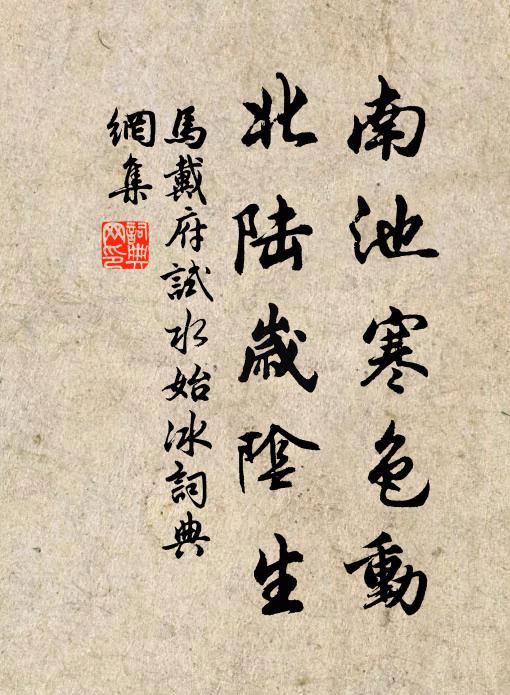 南池寒色動
北陆歲陰生
馬戴府試水始冰詞典
網集
詞典
网印